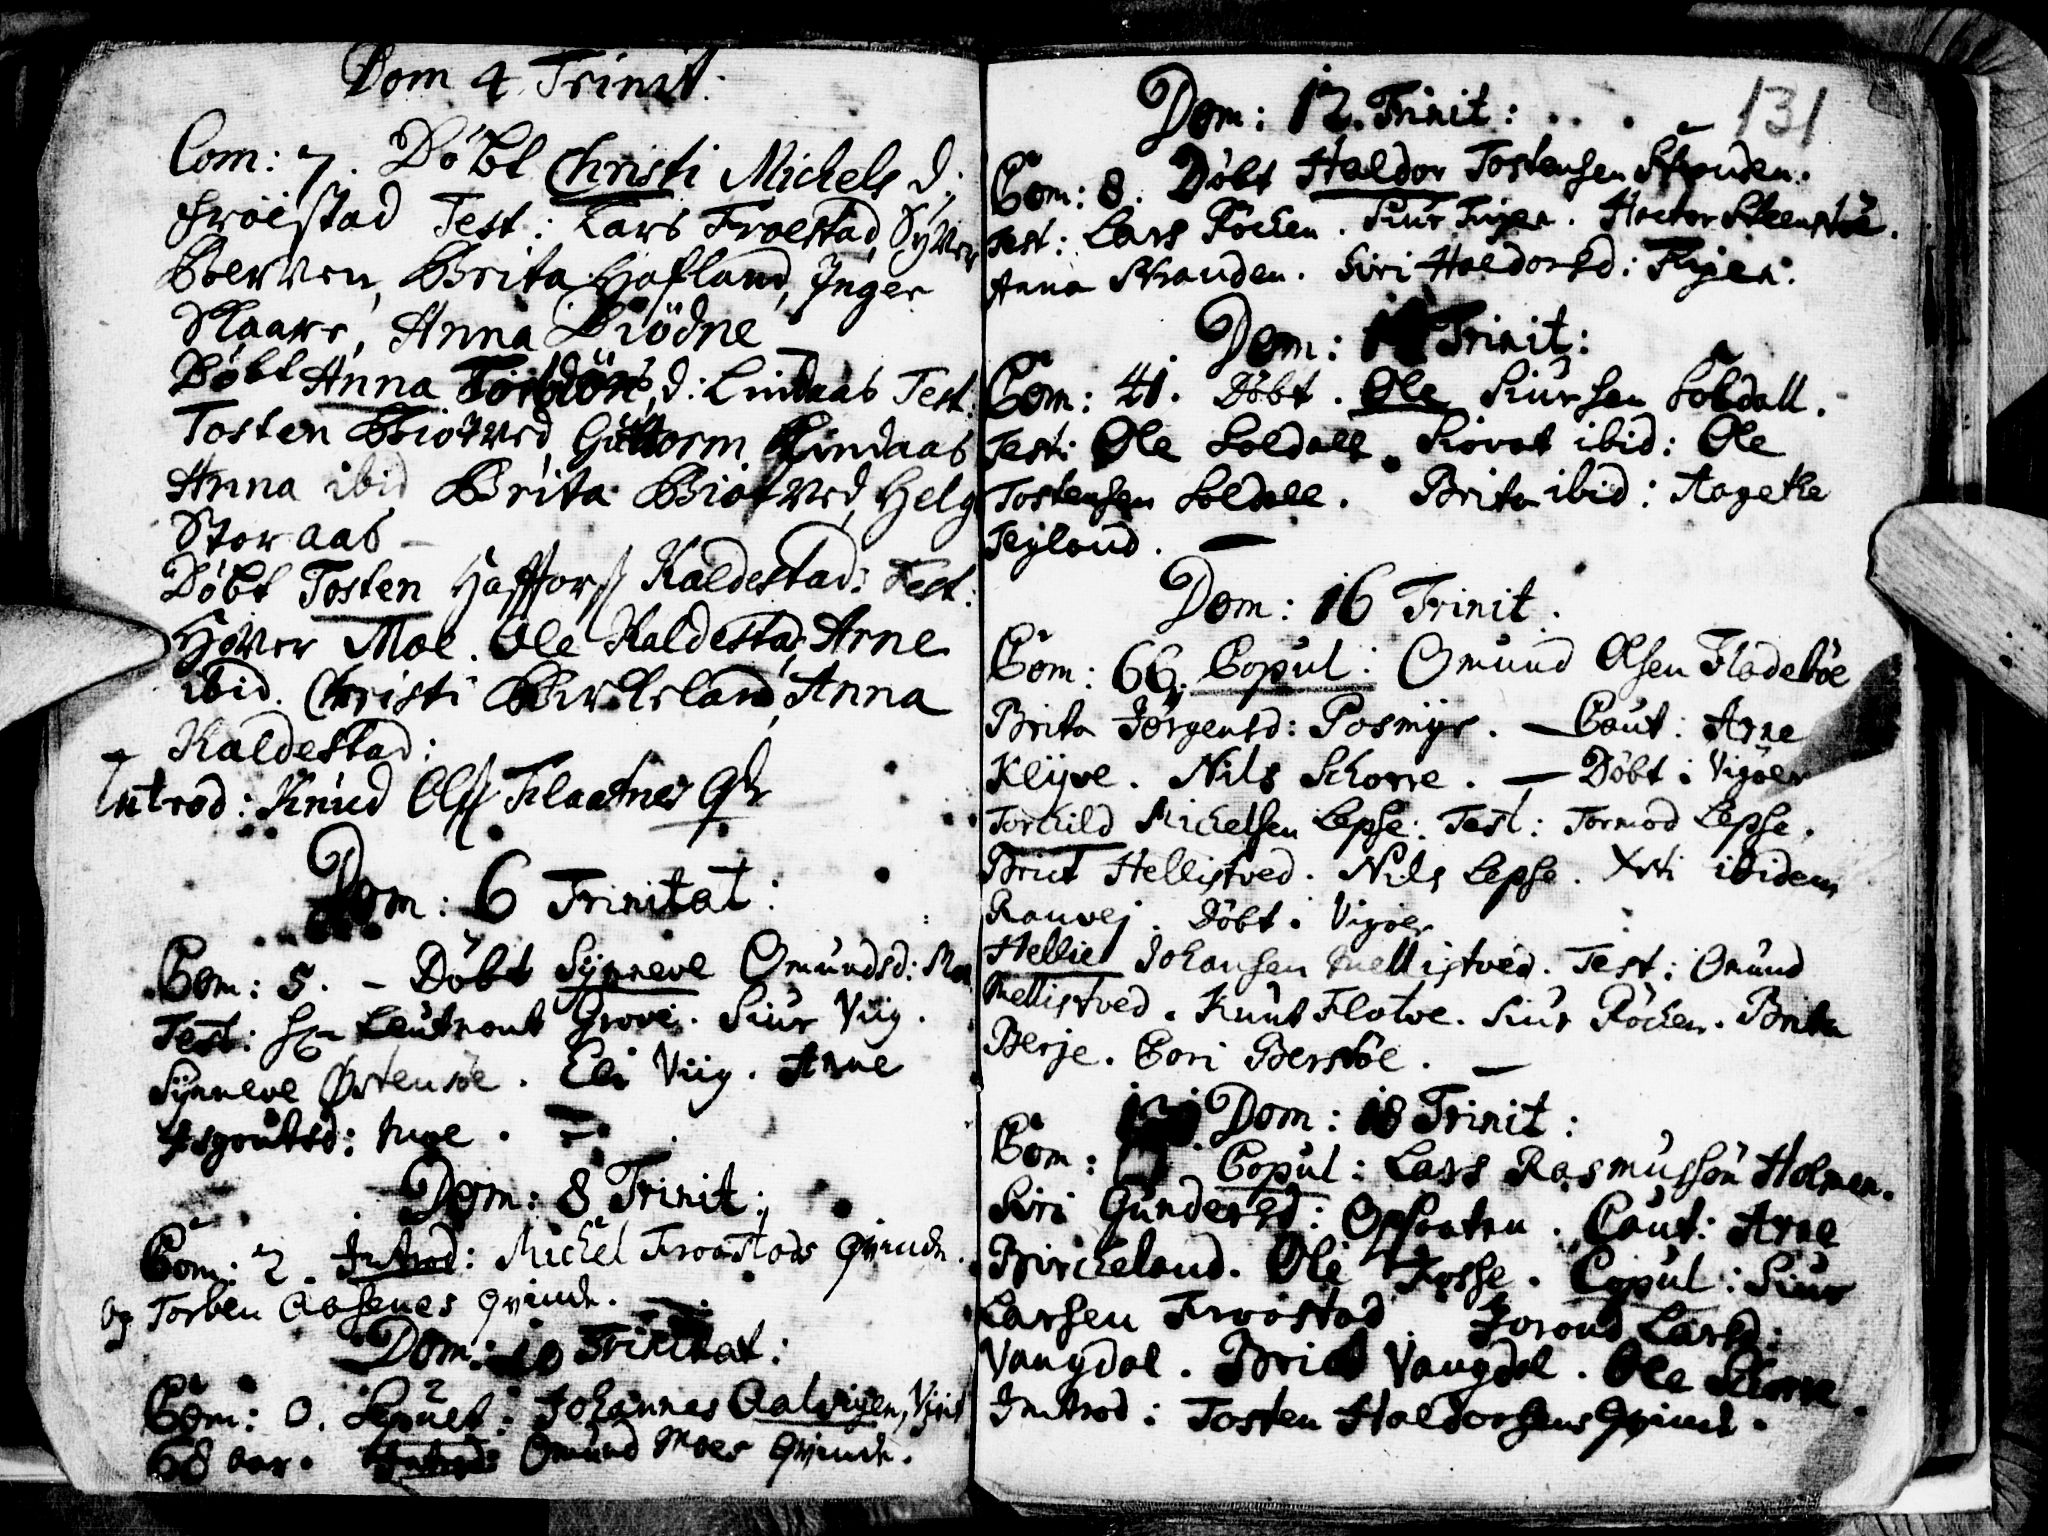 Dom 4 Trinit:
Com: 7. Döbt Christi Michels d:
Froestad Test: Lars Froestad, Syver
Berven, Brita Hafland, Inger
Skaare, Anna Biödne
Döbt Anna d: Lindaas Test:
Tosten Biotved, Guttorm Lindaas
Anna ibid Brita Biotved, Helg
Storaas
Döbt Tosten Kaldestad: Test:
Hover Moe. Ole Kaldestad, Arne
ibid. Christi Birkeland, Anna
Kaldestad:
Introd: Knud Olss Flaatnes
Dom: 6 Trinitat:
Com: 5. - Döbt Synneve Omundsd: Mo
Test: Leutnant Grove. Siur Viig.
Synneve Östensöe. Eli Viig. Arne
Dom: 8 Trinit:
Com: 2. Introd: Michel Froastads Qvinde.
og Torben Aasenes Qvinde.
Dom: 10 Trinitat:
Com: 0. Sepult: Johannes Aalvigen, Vixit
68 aar. Introd: Omund Moes Qvinde.
131
Dom: 12. Trinit:
Com: 8. Döbt Haldor Tostensen Skouden.
Test: Lars Röcken. Siur Hector Steenstöe.
Anna Skouden. Siri Haldorsd:
Dom: Trinit:
Com: 41. Döbt. Ole Siursen Soldall.
Test: Ole Soldall. ibid: Ole
Tostensen Soldall. Brita ibid: Aagethe
Teyland.
Dom: 16 Trinit.
Com: 66. Copul: Omund Olsen Fladeböe
Brita Jörgensd: Posmyr. — Caut: Arne
Klyve. Nils Schorre. — Döbt i Vigöer
Torkild Michelsen Lepse: Test: Tormod Lepse.
Brit Hellistved. Nils Lepse. ibidem
Ranvej. Döbt i Vigöer
Hellie Johansen Hellistved. Test: Omund
Hellistved. Knut Flotve. Siur Röcken. Brita
Berje. Gori Berstöe.
Dom: 18 Trinit:
Com: Copul: Lars Rasmussön Holmen.
Siri Gundersd: Opsaaten. Caut: Arne
Birckeland. Ole Fosse. Copul: Siur
Larsen Froastad Joroud Larsd:
Vangdal. Vangdal. Ole Skorre.
Introd: Tosten Haldorsens Qvinde.